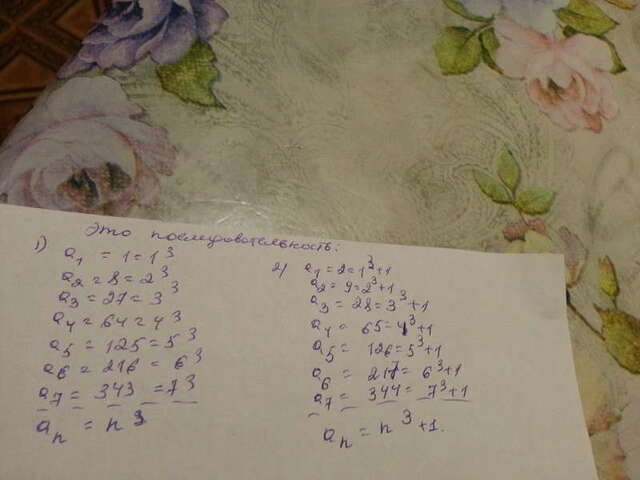 Это последовательность:
1) a₁ = 1 = 1³
a₂ = 8 = 2³
a₃ = 27 = 3³
a₄ = 64 = 4³
a₅ = 125 = 5³
a₆ = 216 = 6³
a₇ = 343 = 7³
aₙ = n³
2) a₁ = 2 = 1³+1
a₂ = 9 = 2³+1
a₃ = 28 = 3³+1
a₄ = 65 = 4³+1
a₅ = 126 = 5³+1
a₆ = 217 = 6³+1
a₇ = 344 = 7³+1
aₙ = n³+1.